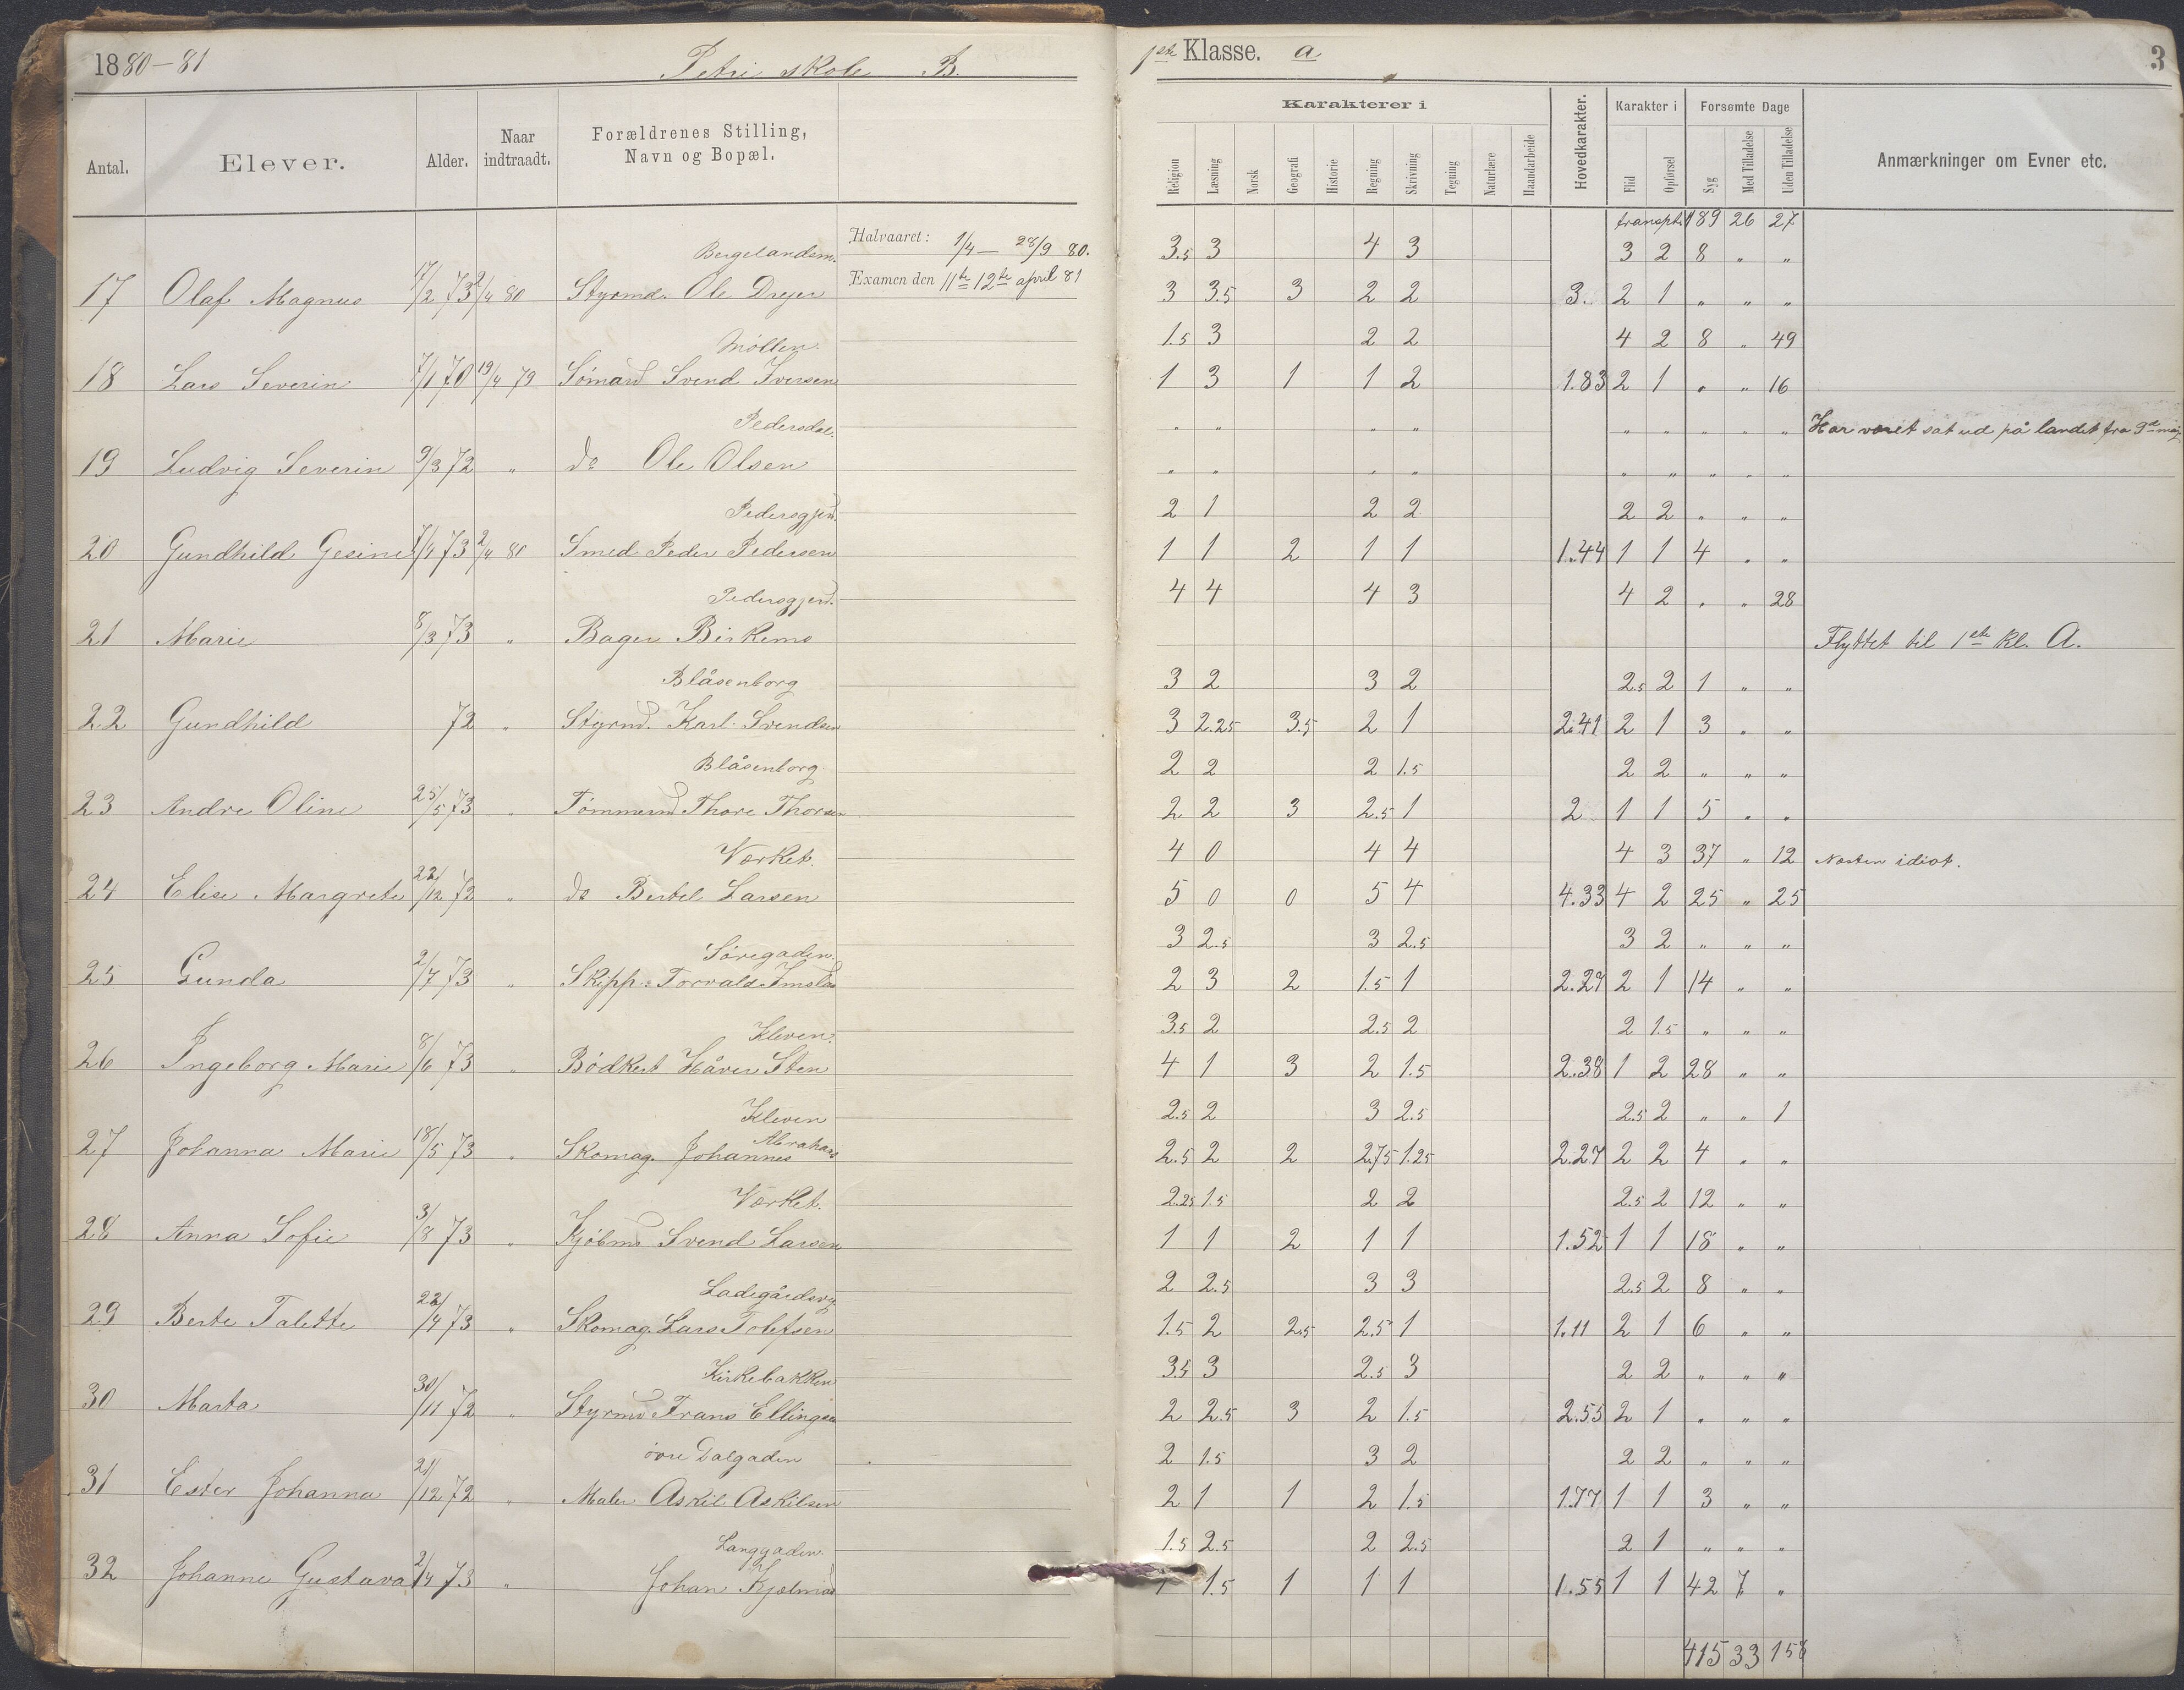 1880-81 Petri skole B. 1ste Klasse. a 3
Antal. Elever. Alder. Naar indtraadt. Forældrenes Stilling, Navn og Bopæl.
Karakterer i Hovedkarakter. Karakter i Forsømte Dage Anmærkninger om Evner etc.
Religion Læsning Norsk Geografi Historie Regning Skrivning Tegning Naturlære Haandarbeide Flid Opførsel Syg Med Tilladelse Uden Tilladelse
transpt. 189 26 27
Bergelandsm. Halvaaret: 1/4 — 28/9 80. 3.5 3 4 3 3 2 8 " "
17 Olaf Magnus 17/2 73 2/4 80 Styrmd. Ole Dreyer Examen den 11te 12te april 81 3 3.5 3 2 2 3. 2 1 " " "
Møllen. 1.5 3 2 2 4 2 8 " 49
18 Lars Severin 7/1 70 19/4 79 Sømand Svend Iversen 1 3 1 1 2 1.83 2 1 " " 16
Pedersdal. " " " " " " " " " Har været sat ud på landet fra 3die maj
19 Ludvig Severin 9/3 72 " do Ole Olsen " " " " " " " " "
Pedersgjerd. 2 1 2 2 2 2 " " "
20 Gundhild Gesine 7/4 73 2/4 80 Smed Peder Pedersen 1 1 2 1 1 1.44 1 1 4 " "
Pedersgjerd. 4 4 4 3 4 2 " " 28
21 Marie 8/3 73 " Bager Birkemo Flyttet til 1ste Kl. A.
Blåsenborg 3 2 3 2 2.5 2 1 " "
22 Gundhild 72 " Styrmd. Karl Svendsen 3 2.25 3.5 2 1 2.41 2 1 3 " "
Blåsenborg. 2 2 2 1.5 2 2 " " "
23 Andre Oline 25/5 73 " Tømmermd Thore Thorsen 2 2 3 2.5 1 2 1 1 5 " "
Værket. 4 0 4 4 4 3 37 " 12 Næsten idiot.
24 Elise Margrete 22/12 72 " do Bertel Larsen 5 0 0 5 4 4.33 4 2 25 " 25
Søregaden. 3 2.5 3 2.5 3 2 " " "
25 Gunda 2/7 73 " Skipp. Torvald Imsland 2 3 2 1.5 1 2.27 2 1 14 " "
Kleven. 3.5 2 2.5 2 2 1.5 " " "
26 Ingeborg Marie 8/6 73 " Bødker Håver Sten 4 1 3 2 1.5 2.38 1 2 28 " "
Kleven 2.5 2 3 2.5 2.5 2 " " 1
27 Johanna Marie 18/5 73 " Skomag. Johannes Abrahams 2.5 2 2 2.75 1.25 2.27 2 2 4 " "
Værket. 2.25 1.5 2 2 2.5 2 12 " "
28 Anna Sofie 3/8 73 " Kjøbmd Svend Larsen 1 1 2 1 1 1.52 1 1 18 " "
Ladegårdsvej 2 2.5 3 3 2.5 2 8 " "
29 Berte Talette 22/4 73 " Skomag. Lars Tolefsen 1.5 2 2.5 2.5 1 1.11 2 1 6 " "
Kirkebakken 3.5 3 2.5 3 2 2 " " "
30 Marta 30/11 72 " Styrmd Frans Ellingsen 2 2.5 3 2 1.5 2.55 2 1 " " "
øvre Dalgaden 2 1.5 3 2 2 2 " " "
31 Ester Johanna 21/12 72 " Maler Askil Askilsen 2 1 1 2 1.5 1.77 1 1 3 " "
Langgaden. 1.5 2.5 2 2.5 2 1 " " "
32 Johanne Gustava 2/4 73 " Johan Kjelmad 1 1.5 1 1 1 1.55 1 1 42 7 "
415 33 158